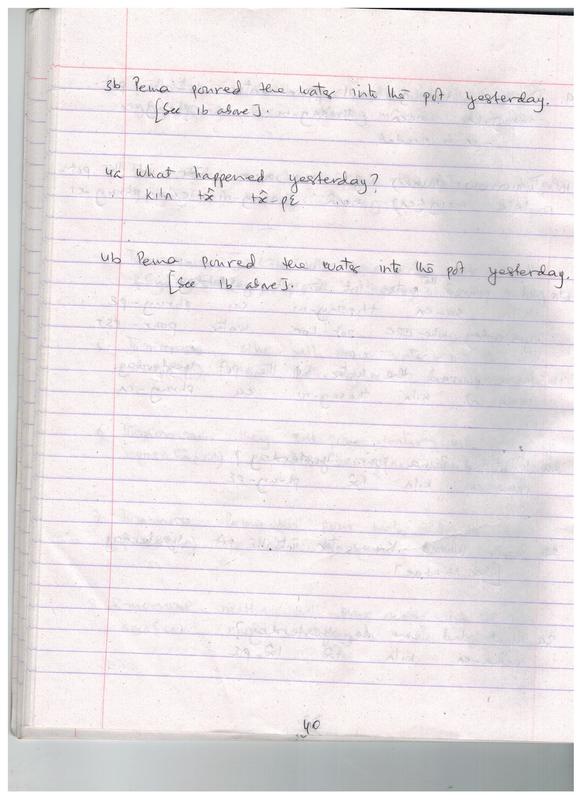 3b Pema poured the water into the pot yesterday.
[See 1b above].
4a What happened yesterday?
kiln tx̂ tx̂-pɛ
4b Pema poured the water into the pot yesterday.
[See 1b above].
40